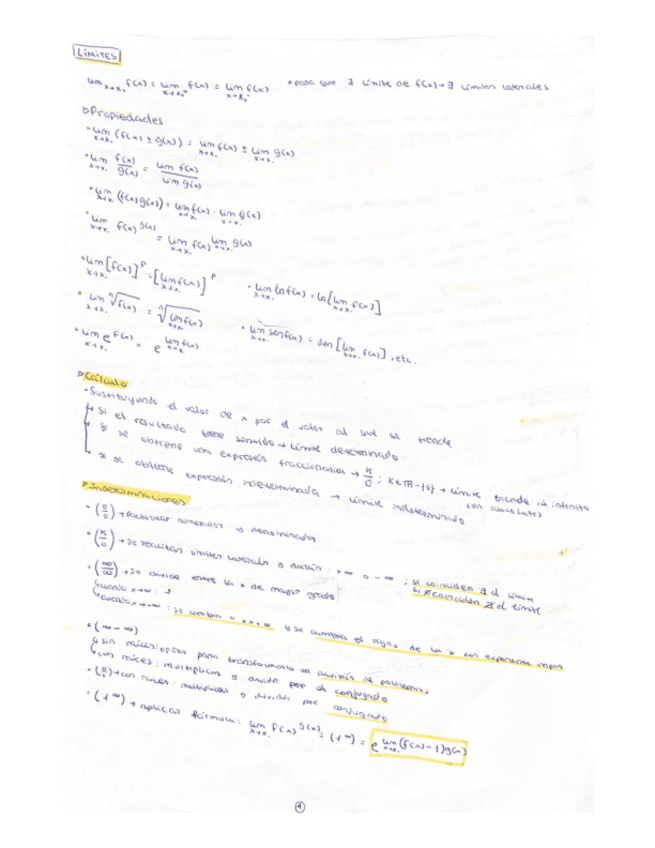 LÍMITES
lim x→x₀ f(x) = lim x→x₀⁺ f(x) = lim x→x₀⁻ f(x) * para que ∃ límite de f(x) → ∃ límites laterales
▷ Propiedades
• lim x→x₀ (f(x) ± g(x)) = lim x→x₀ f(x) ± lim x→x₀ g(x)
• lim x→x₀ f(x)/g(x) = lim f(x) / lim g(x)
• lim x→x₀ (f(x)·g(x)) = lim x→x₀ f(x) · lim x→x₀ g(x)
• lim x→x₀ f(x)^g(x) = lim x→x₀ f(x)^lim x→x₀ g(x)
• lim x→x₀ [f(x)]^p = [lim x→x₀ f(x)]^p • lim x→x₀ ln f(x) = ln [lim x→x₀ f(x)]
• lim x→x₀ ⁿ√f(x) = ⁿ√lim x→x₀ f(x)
• lim x→x₀ e^f(x) = e^lim x→x₀ f(x) • lim x→x₀ sen f(x) = sen [lim x→x₀ f(x)], etc.
▷ Cálculo
• Sustituyendo el valor de x por el valor al que se tiende
↳ si el resultado tiene sentido → límite determinado
↳ si se obtiene una expresión fraccionaria → K/0 ; K∈ℝ-{0} → límite tiende al infinito
si se obtiene expresión indeterminada → límite indeterminado
▷ Indeterminaciones
• (0/0) → factorizar numerador y denominador
• (K/0) → se realizan límites laterales y darán: +∞ o -∞ ; si coinciden ∃ el límite
si ∄ coinciden ∄ el límite
• (∞/∞) → se divide entre la x de mayor grado
↳ cuando x→∞ :
↳ cuando x→-∞ : se cambia a x→+∞ y se cambia el signo de la x con exponente impar
• (∞-∞)
↳ sin raíces: operar para transformarlo en división de polinomios
↳ con raíces: multiplicar y dividir por el conjugado
con raíces: multiplicar y dividir por conjugado
• (1^∞) → aplicar fórmula: lim x→x₀ f(x)^g(x) = (1^∞) = e^lim x→x₀ (f(x)-1)g(x)
1